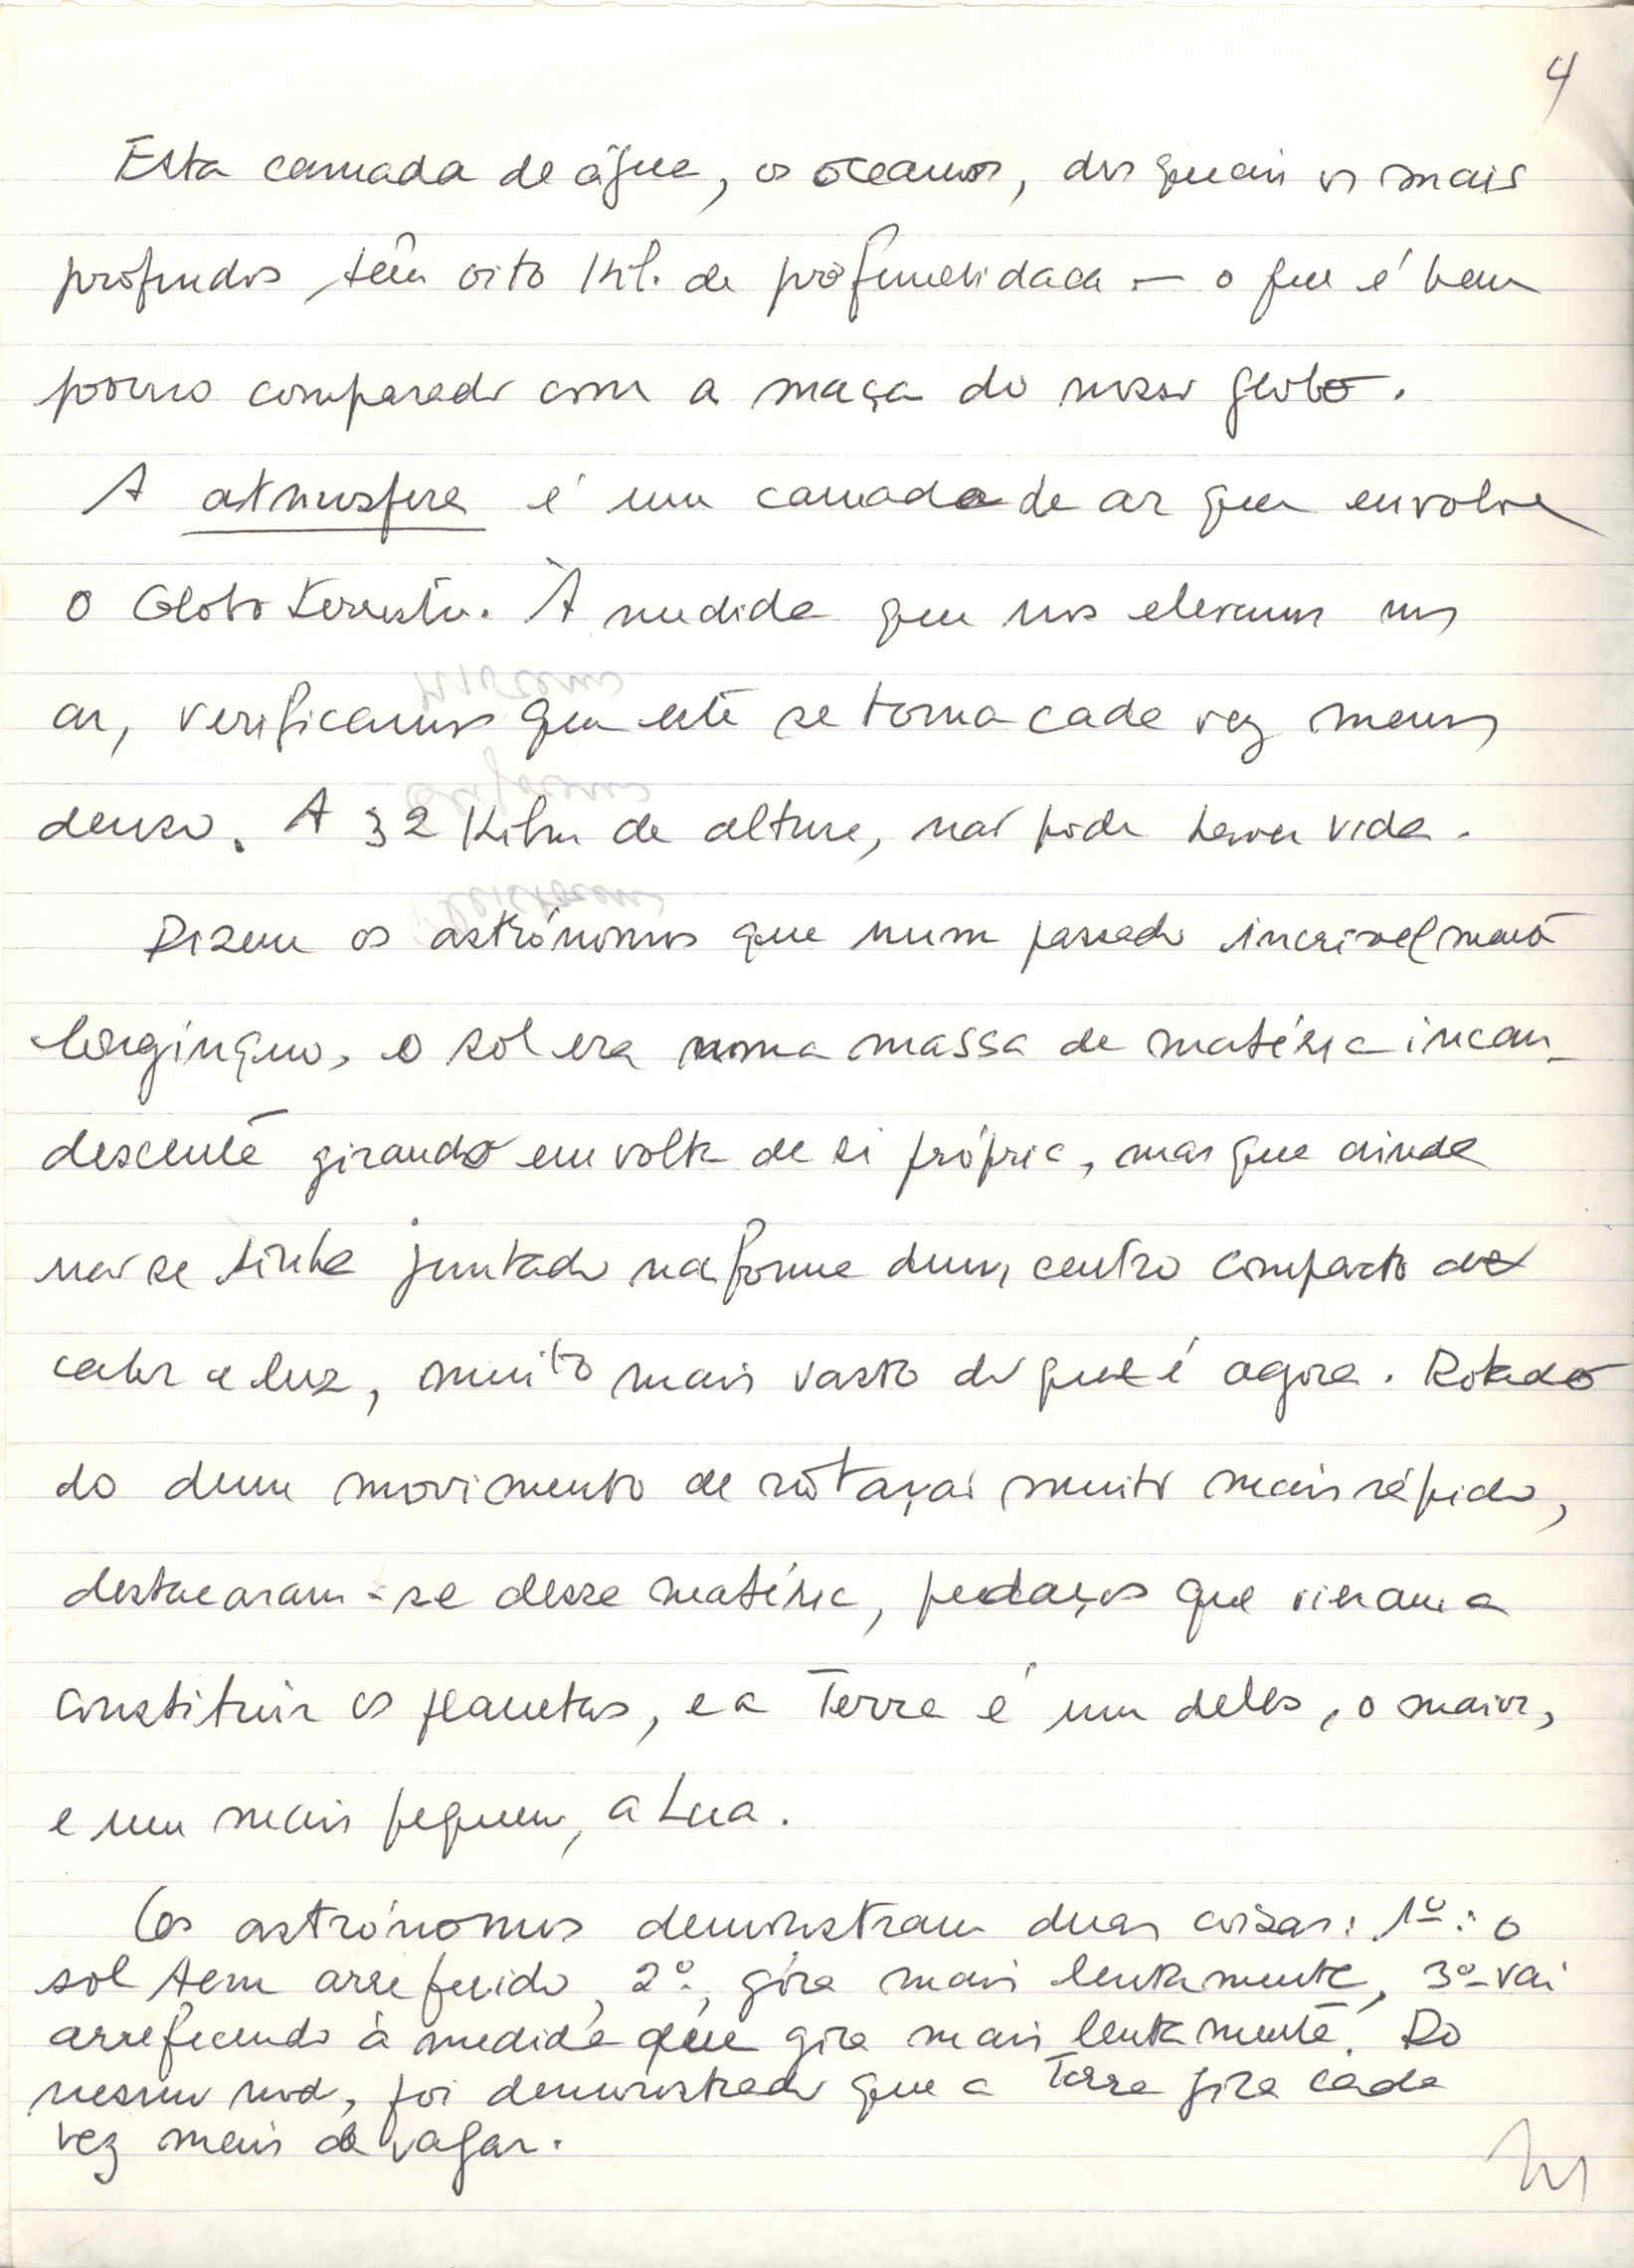 4
Esta camada de água, os oceanos, dos quais os mais
profundos têm oito Kil. de profundidade — o que é bem
pouco comparado com a maça do nosso globo.
A atmosfera é uma camada de ar que envolve
o Globo terrestre. À medida que nos elevamos no
ar, verificamos que este se torna cada vez menos
denso. A 32 Kilm de altura, não pode haver vida.
Dizem os astrónomos que num passado incrivelmente
longínquo, o sol era uma massa de matéria incan-
descente girando em volta de si própria, mas que ainda
não se tinha juntado na forma dum centro compacto de
calor e luz, muito mais vasto do que é agora. Rotado
do dum movimento de rotação muito mais rápido,
destacaram-se dessa matéria, pedaços que vieram a
constituir os planetas, e a Terra é um deles, o maior,
e um mais pequeno, a Lua.
Os astrónomos demonstram duas coisas: 1º: o
sol tem arrefecido, 2º, gira mais lentamente, 3º- vai
arrefecendo à medida que gira mais lentamente. Do
mesmo mod, foi demonstrado que a Terra gira cada
vez mais devagar.